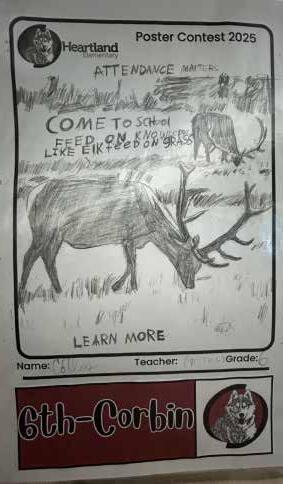 Heartland
Elementary
Poster Contest 2025
ATTENDANCE MATTERS
COME TO SCHOOL
FEED ON KNOWLEDGE
LIKE ELK FEED ON GRASS
LEARN MORE
Name:
Teacher:
Grade: 6
6th-Corbin